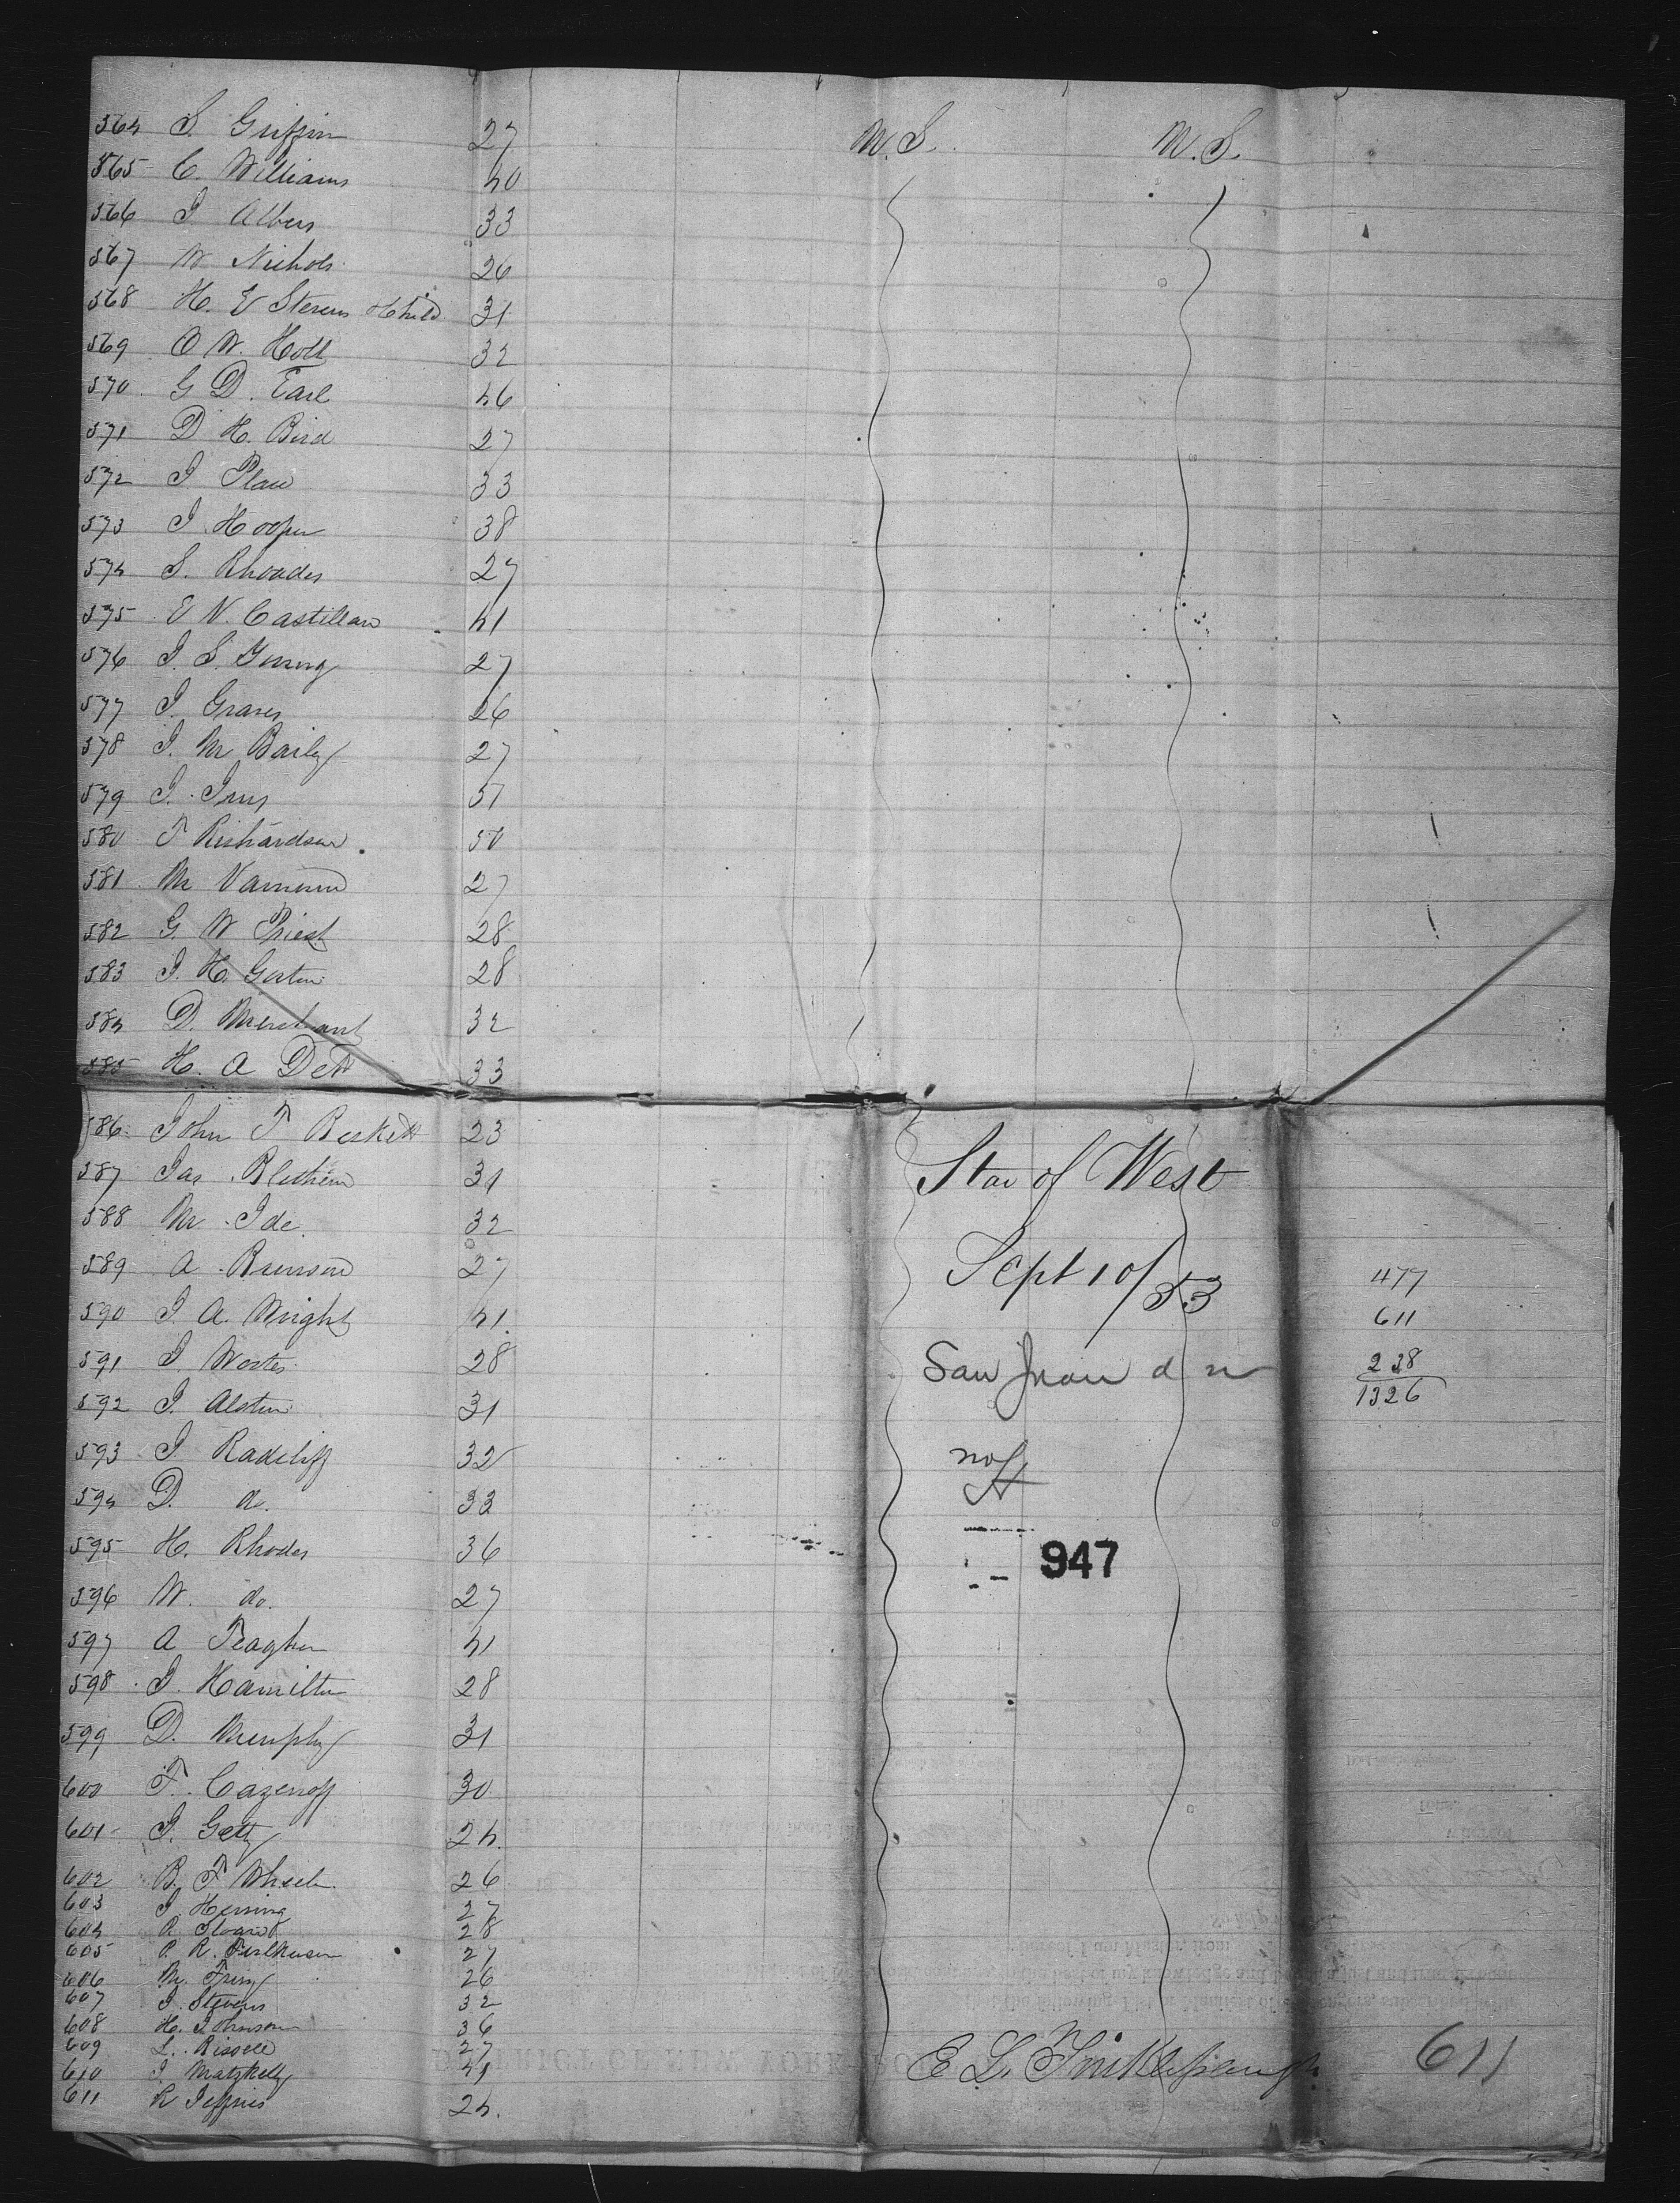 564 S. Griffin 27 U.S. U.S.
565 C. Williams 40
566 J Albers 33
567 W Nichols 26
568 H. E Stevens & child 31
569 O W. Holt 32
570 G D. Earl 46
571 D H. Bird 27
572 J 33
573 J. Hooper 38
574 S. Rhoades 27
575 E N. Castillan 41
576 J. S. Young 27
577 J. Graves 26
578 J. M Baily 27
579 J. 
580 T Richardson 50
581 M Varnum 27
582 G. W Priest 28
583 J. H. 28
584 D. Merchant 32
585 H. A Dett 33
586 John T Beckett 23
587 Jas. Blethien 31
588 M. Ide 32
589 A. Brunson 27
590 J. A. Wright 41
591 J 28
592 J. Alston 31
593 J Radcliff 32
594 D. do. 33
595 H. Rhodes 36
596 W. do. 27
597 A 41
598 J. Hamilton 28
599 D. Murphy 31
600 F. Cazenoff 30
601 J. Getty 24
602 B. F Wheeler 26
603 J. Herring 27
604 28
605 P. R. 27
606 M. 26
607 J. Stevens 32
608 H. Johnson 36
609 L. Rissell 27
610 J. 41
611 R Jeffries 24
Star of West
Sept 10/53
San Juan d n
947
477
611
238
1326
E L. Tinklepaugh
611